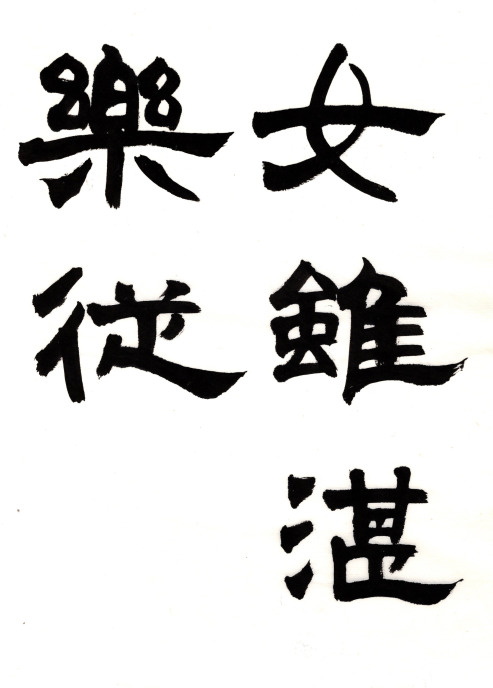 女雖湛
樂從